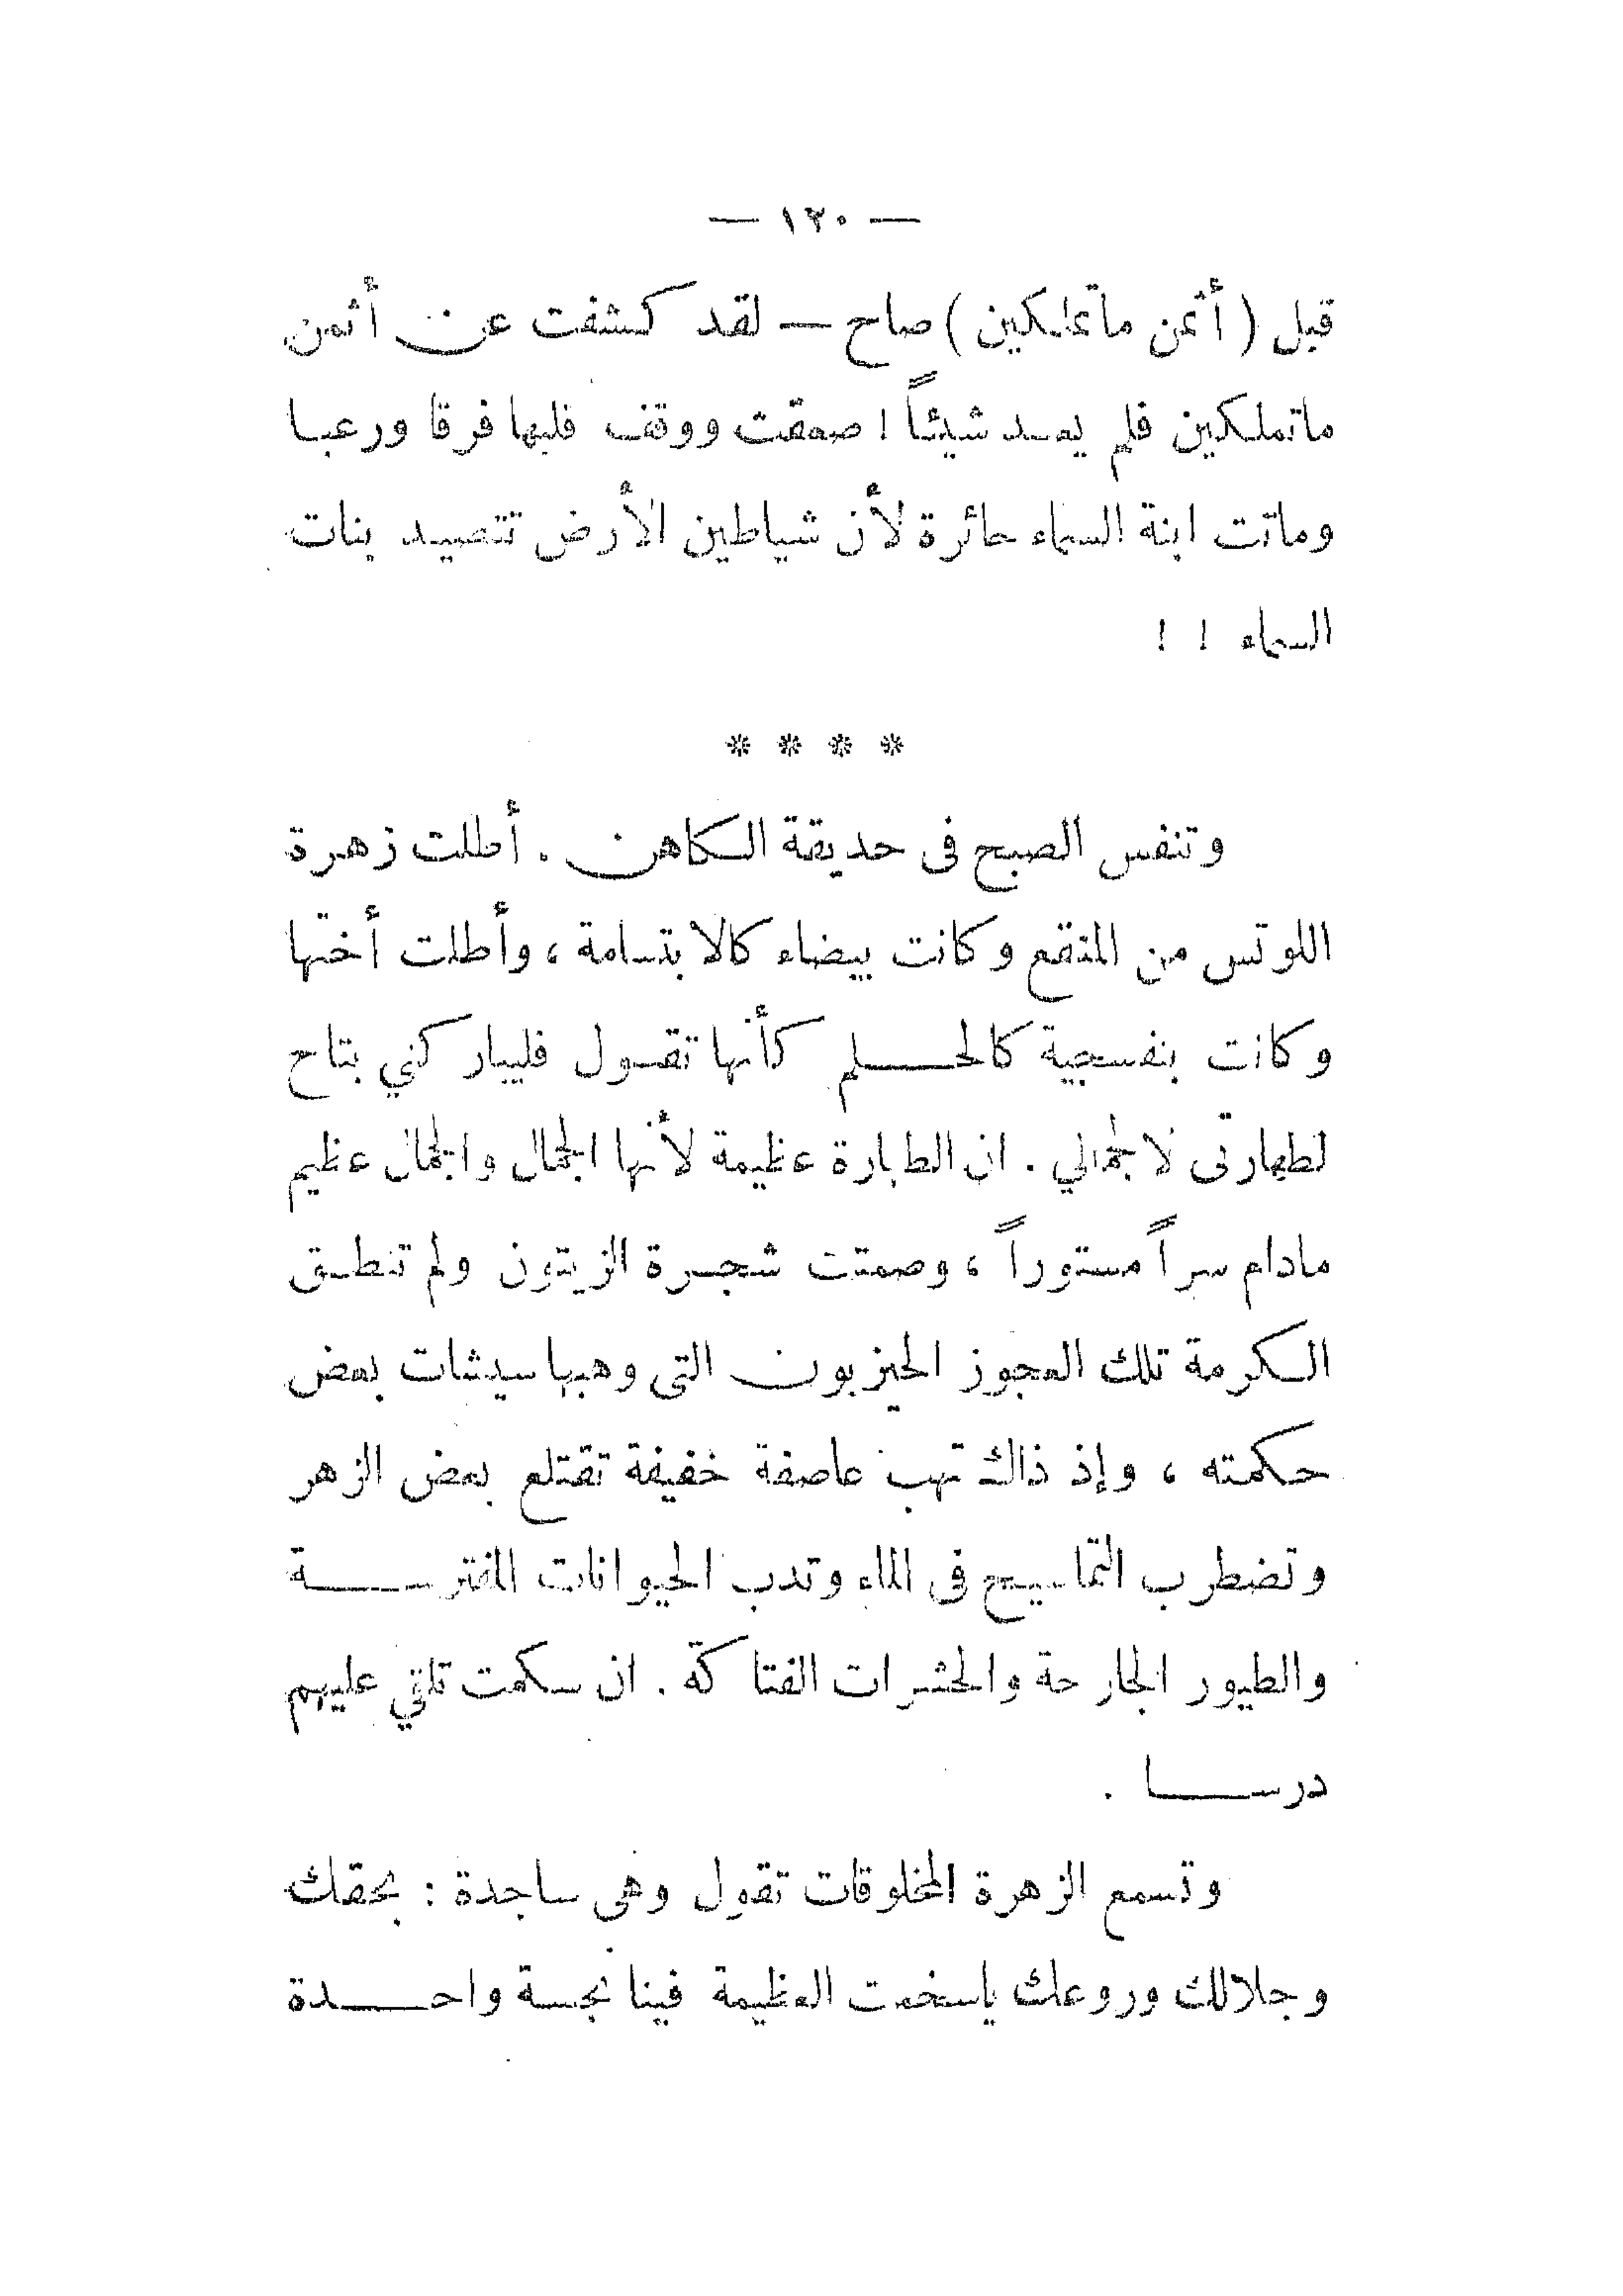 — ١٢٠ —
قبل ( أثمن ماتملكين ) صاح — لقد كشفت عن أثمن
ماتملكين فلم يعد شيئاً ! صعقت ووقف قلبها فرقا ورعبا
وماتت ابنة السماء حائرة لأن شياطين الأرض تتصيد بنات
السماء ! !
* * * *
وتنفس الصبح فى حديقة الكاهن . أطلت زهرة
اللوتس من المنقع وكانت بيضاء كالابتسامة ، وأطلت أختها
وكانت بنفسجية كالحلم كأنها تقول فليباركني بتاح
لطهارتى لا لجمالي . ان الطهارة عظيمة لأنها الجمال والجمال عظيم
مادام سراً مستوراً ، وصمتت شجرة الزيتون ولم تنطق
الكرمة تلك العجوز الحيزبون التى وهبها سيشات بعض
حكمته ، وإذ ذاك تهب عاصفة خفيفة تقتلع بعض الزهر
وتضطرب التماسيح فى الماء وتدب الحيوانات المفترسة
والطيور الجارحة والحشرات الفتاكة . ان سكمت تلقي عليهم
درسا .
وتسمع الزهرة المخلوقات تقول وهى ساجدة : بحقك
وجلالك وروعك ياسخمت العظيمة فينا نجسة واحدة